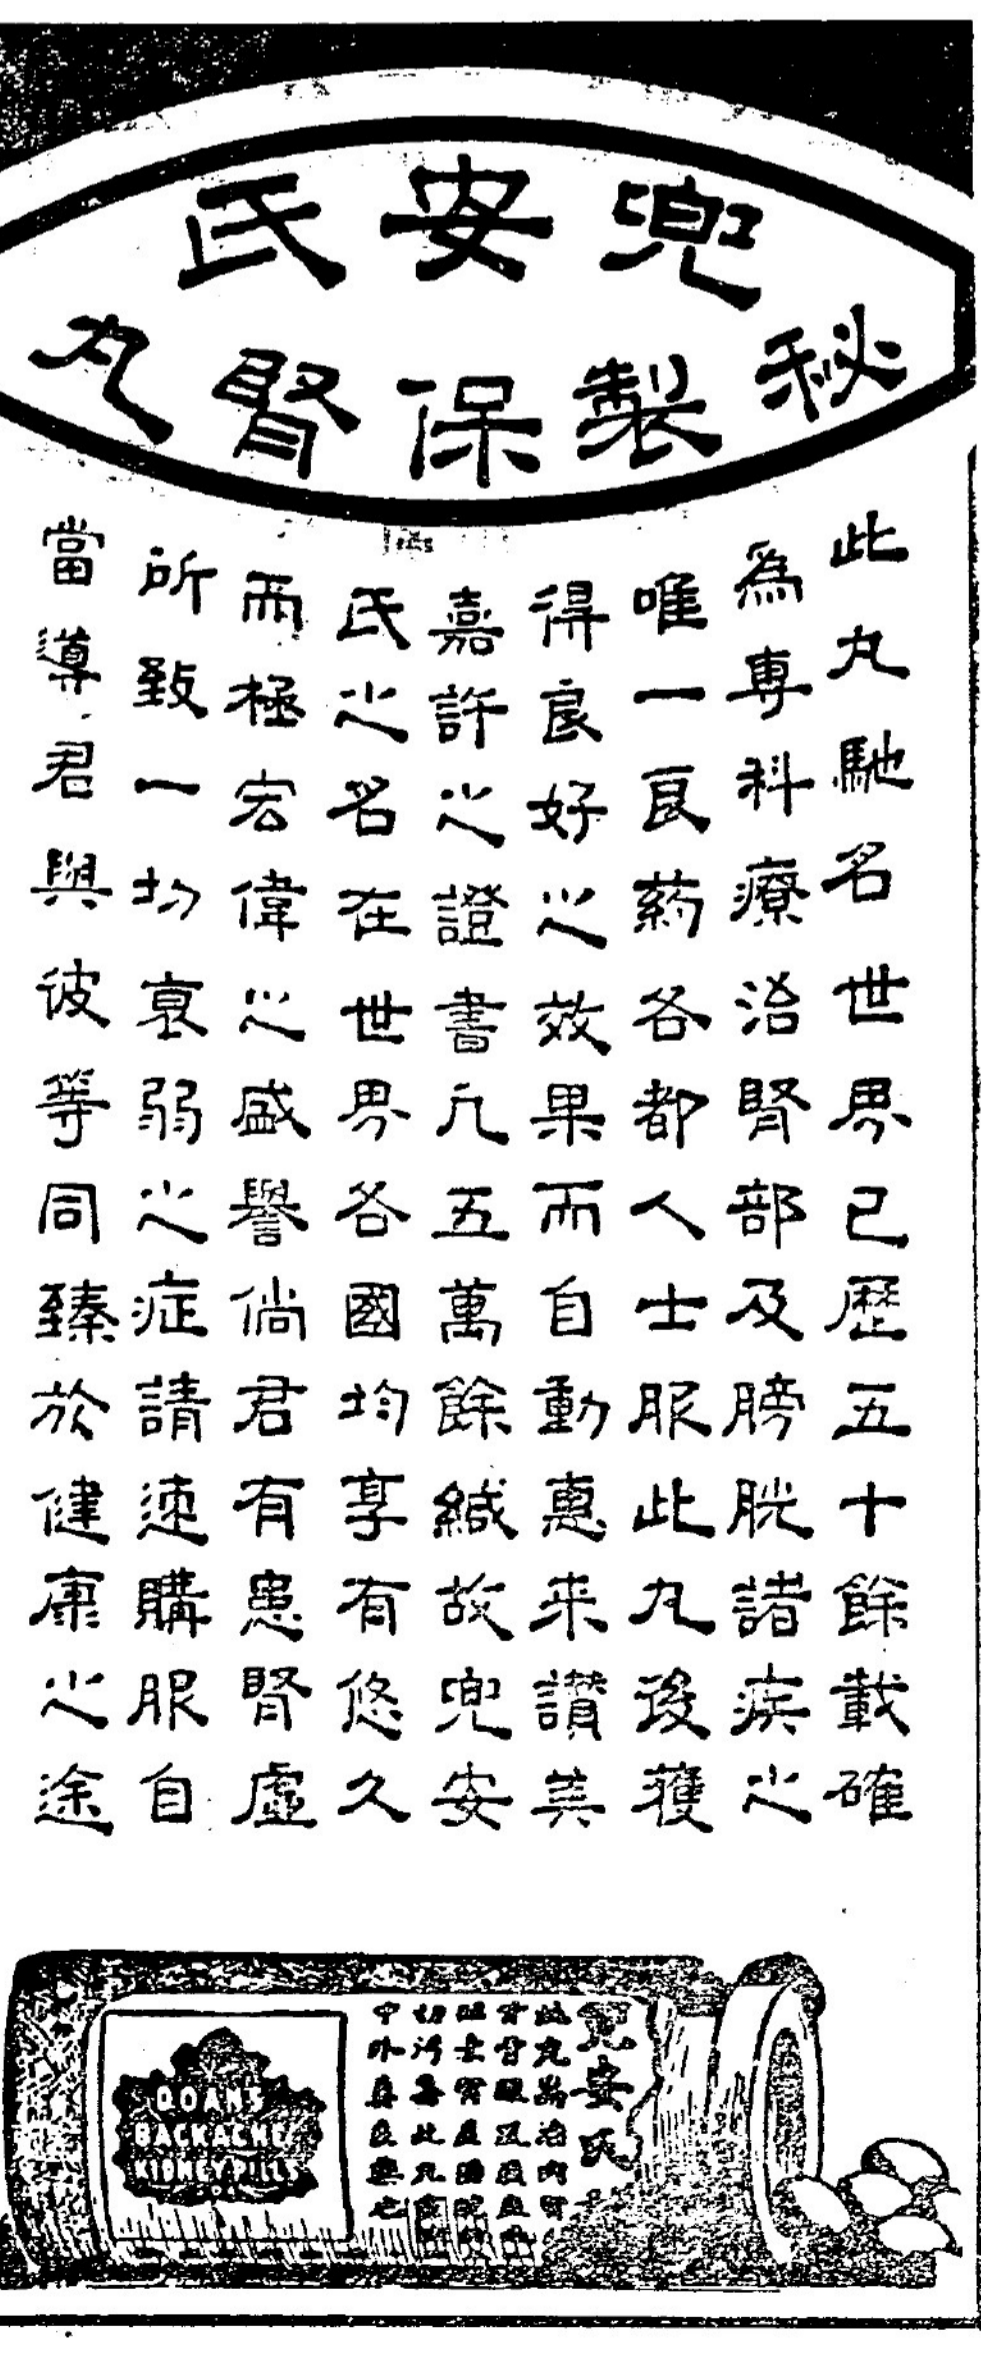 兜安氏
秘製保腎丸
此丸馳名世界已歷五十餘載確
為專科療治腎部及膀胱諸疾之
唯一良葯各都人士服此丸後獲
得良好之效果而自動惠來讚美
嘉許之證書凡五萬餘緘故兜安
氏之名在世界各國均享有悠久
而極宏偉之盛譽倘君有患腎虛
所致一切衰弱之症請速購服自
當導君與彼等同臻於健康之途
DOAN'S
BACKACHE
KIDNEY PILLS
兜安氏